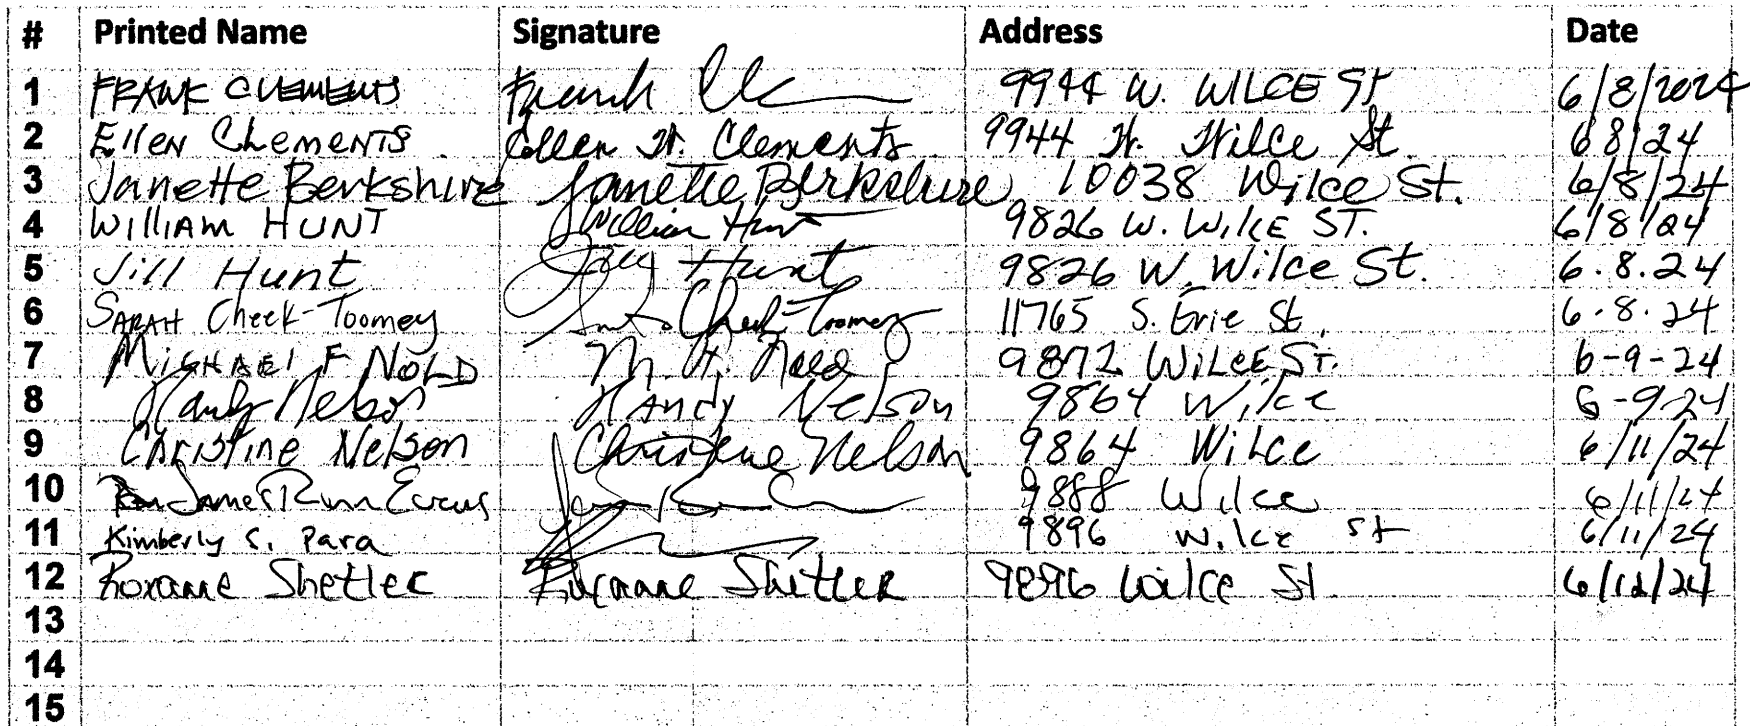 # Printed Name Signature Address Date
1 FRANK CLEMENTS Frank 9944 W. WILCE ST 6/8/2024
2 Ellen Clements Ellen W. Clements 9944 W. Wilce St. 6 8/24
3 Janette Berkshire Janette Berkshire 10038 Wilce St. 6/8/24
4 WILLIAM HUNT William Hunt 9826 W. WILCE ST. 6/8/24
5 Jill Hunt Jill Hunt 9826 W. Wilce St. 6.8.24
6 SARAH Cheek-Toomey Cheek-Toomey 11765 S. Erie St. 6.8.24
7 MICHAEL F NOLD M. F. Nold 9872 WILCE ST. 6-9-24
8 Randy Nelson Randy Nelson 9864 Wilce 6-9-24
9 Christine Nelson Christine Nelson 9864 Wilce 6/11/24
10 James 9888 Wilce 6/11/24
11 Kimberly S. Para 9896 Wilce St 6/11/24
12 Roxanne Shetler Roxanne Shetler 9896 Wilce St 6/12/24
13
14
15